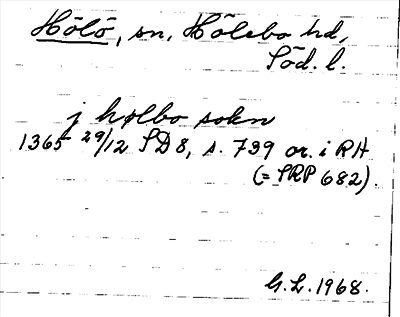 Hölö, sn, Hölebo hd,
Söd. l.
j hølbo sokn
1365 29/12 SD 8, s. 739 or. i RH
(= SRP 682).
G. L. 1968.